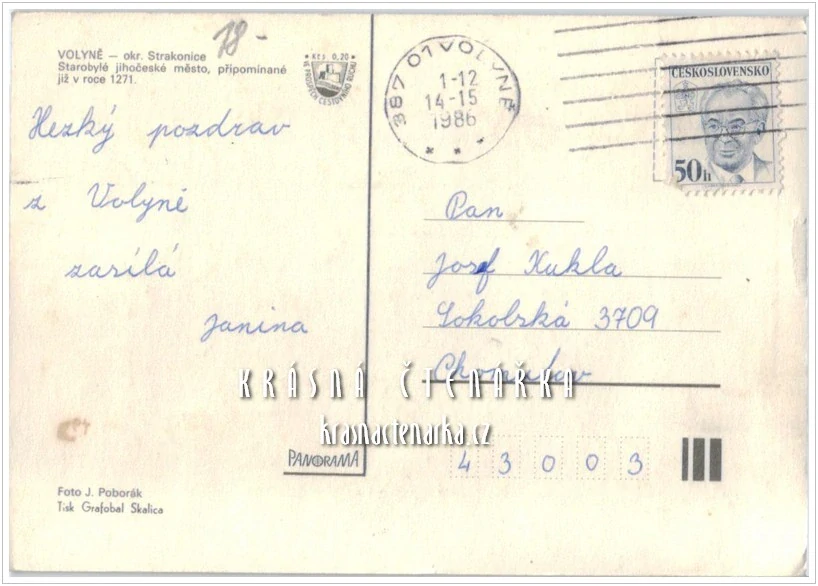 VOLYNĚ — okr. Strakonice
Starobylé jihočeské město, připomínané
již v roce 1271.
78-
Kčs 0,20
VE PROSPĚCH CESTOVNÍHO RUCHU
387 01 VOLYNĚ
1-12
14-15
1986
ČESKOSLOVENSKO
50h
Hezký pozdrav
z Volyně
zasílá
Janina
Pan
Josef Kukla
Sokolská 3709
Chomutov
KRÁSNÁ ČTENAŘKA
krasnactenarka.cz
PANORAMA
43003
Foto J. Poborák
Tisk Grafobal Skalica